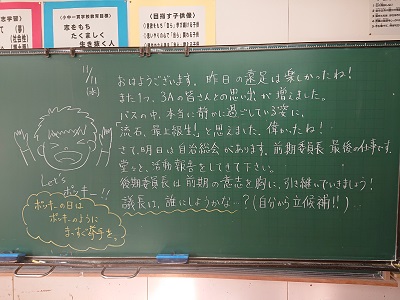 志学習】
て (夢)
(社会性)
【小中一貫学校教育目標】
志をもち
たくましく
生き抜く人
【目指す子供像】
11/11
(水)
おはようございます。昨日の遠足は楽しかったね！
また1つ、3Aの皆さんとの思い出が増えました。
バスの中、本当に静かに過ごしている姿に、
「流石、最上級生」と思えました。偉かったね！
さて、明日は自治総会があります。前期委員長、最後の仕事です。
堂々と、活動報告をしてきて下さい。
後期委員長は前期の意志を胸に、引き継いでいきましょう！
議長は、誰にしようかな…？(自分から立候補!!)
Let's
ポッキー!!
ポッキーの日は
ポッキーのように
まっすぐ挙手を。